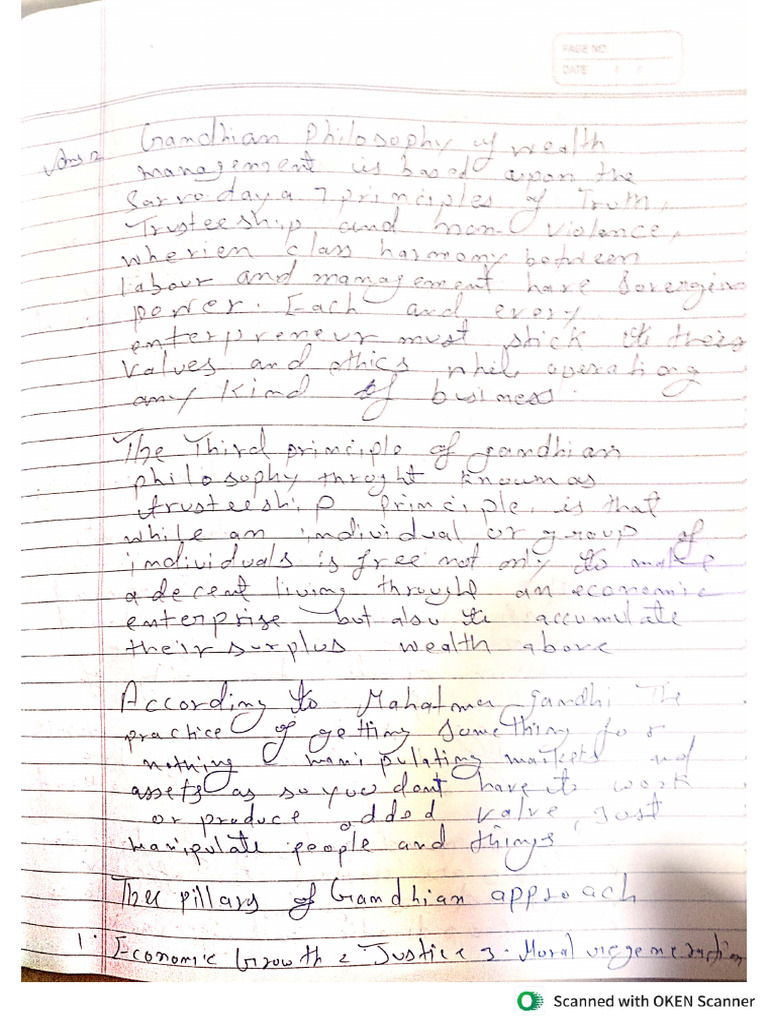 PAGE NO
DATE
Ans 2
Gandhian Philosophy of wealth
management is based upon the
Sarvodaya 7 principles of Truth,
Trusteeship and non-violence,
wherien class harmony between
labour and management have
power. Each and every
enterpreneur must stick to their
values and ethics while operationg
any kind of business
The Third principle of gandhian
philosophy throght known as
trusteeship principle, is that
while an individual or group of
individuals is free not only to make
a decent living through an economic
enterprise but also to accumulate
their surplus wealth above
According to Mahatma gandhi The
practice of getting something for
nothing manipulating markets and
assets as so you dont have to work
or produce added value, Just
manipulate people and things,
The pillars of Gandhian approach
1. Economic Growth 2 Justice 3. Moral
Scanned with OKEN Scanner